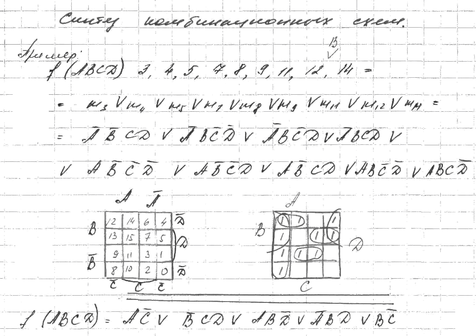 Синтез комбинационных схем.
Пример:
B
f (ABCD) 3, 4, 5, 7, 8, 9, 11, 12, 14 =
= m₃ V m₄ V m₅ V m₇ V m₈ V m₉ V m₁₁ V m₁₂ V m₁₄ =
= A̅ B̅ C D V A̅ B C̅ D̅ V A̅ B C̅ D V A̅ B C D V
V A B̅ C̅ D̅ V A B̅ C̅ D V A B̅ C D V A B C̅ D̅ V A B C D̅
A A̅
B 12 14 6 4 D̅
13 15 7 5 D
B̅ 9 11 3 1
8 10 2 0 D̅
C̅ C C̅
A
B 1 1 1
1 1 1 D
1 1 1
1
C
f (ABCD) = A C̅ V B̅ C D V A B D̅ V A̅ B D V B C̅